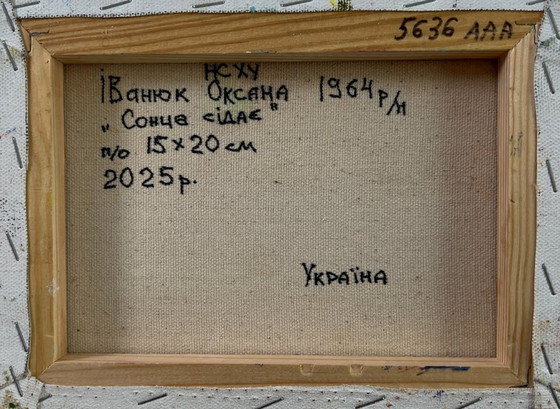 5636 AAA
НСХУ
Іванюк Оксана 1964 р/н
"Сонце сідає"
п/о 15×20 см
2025 р.
Україна